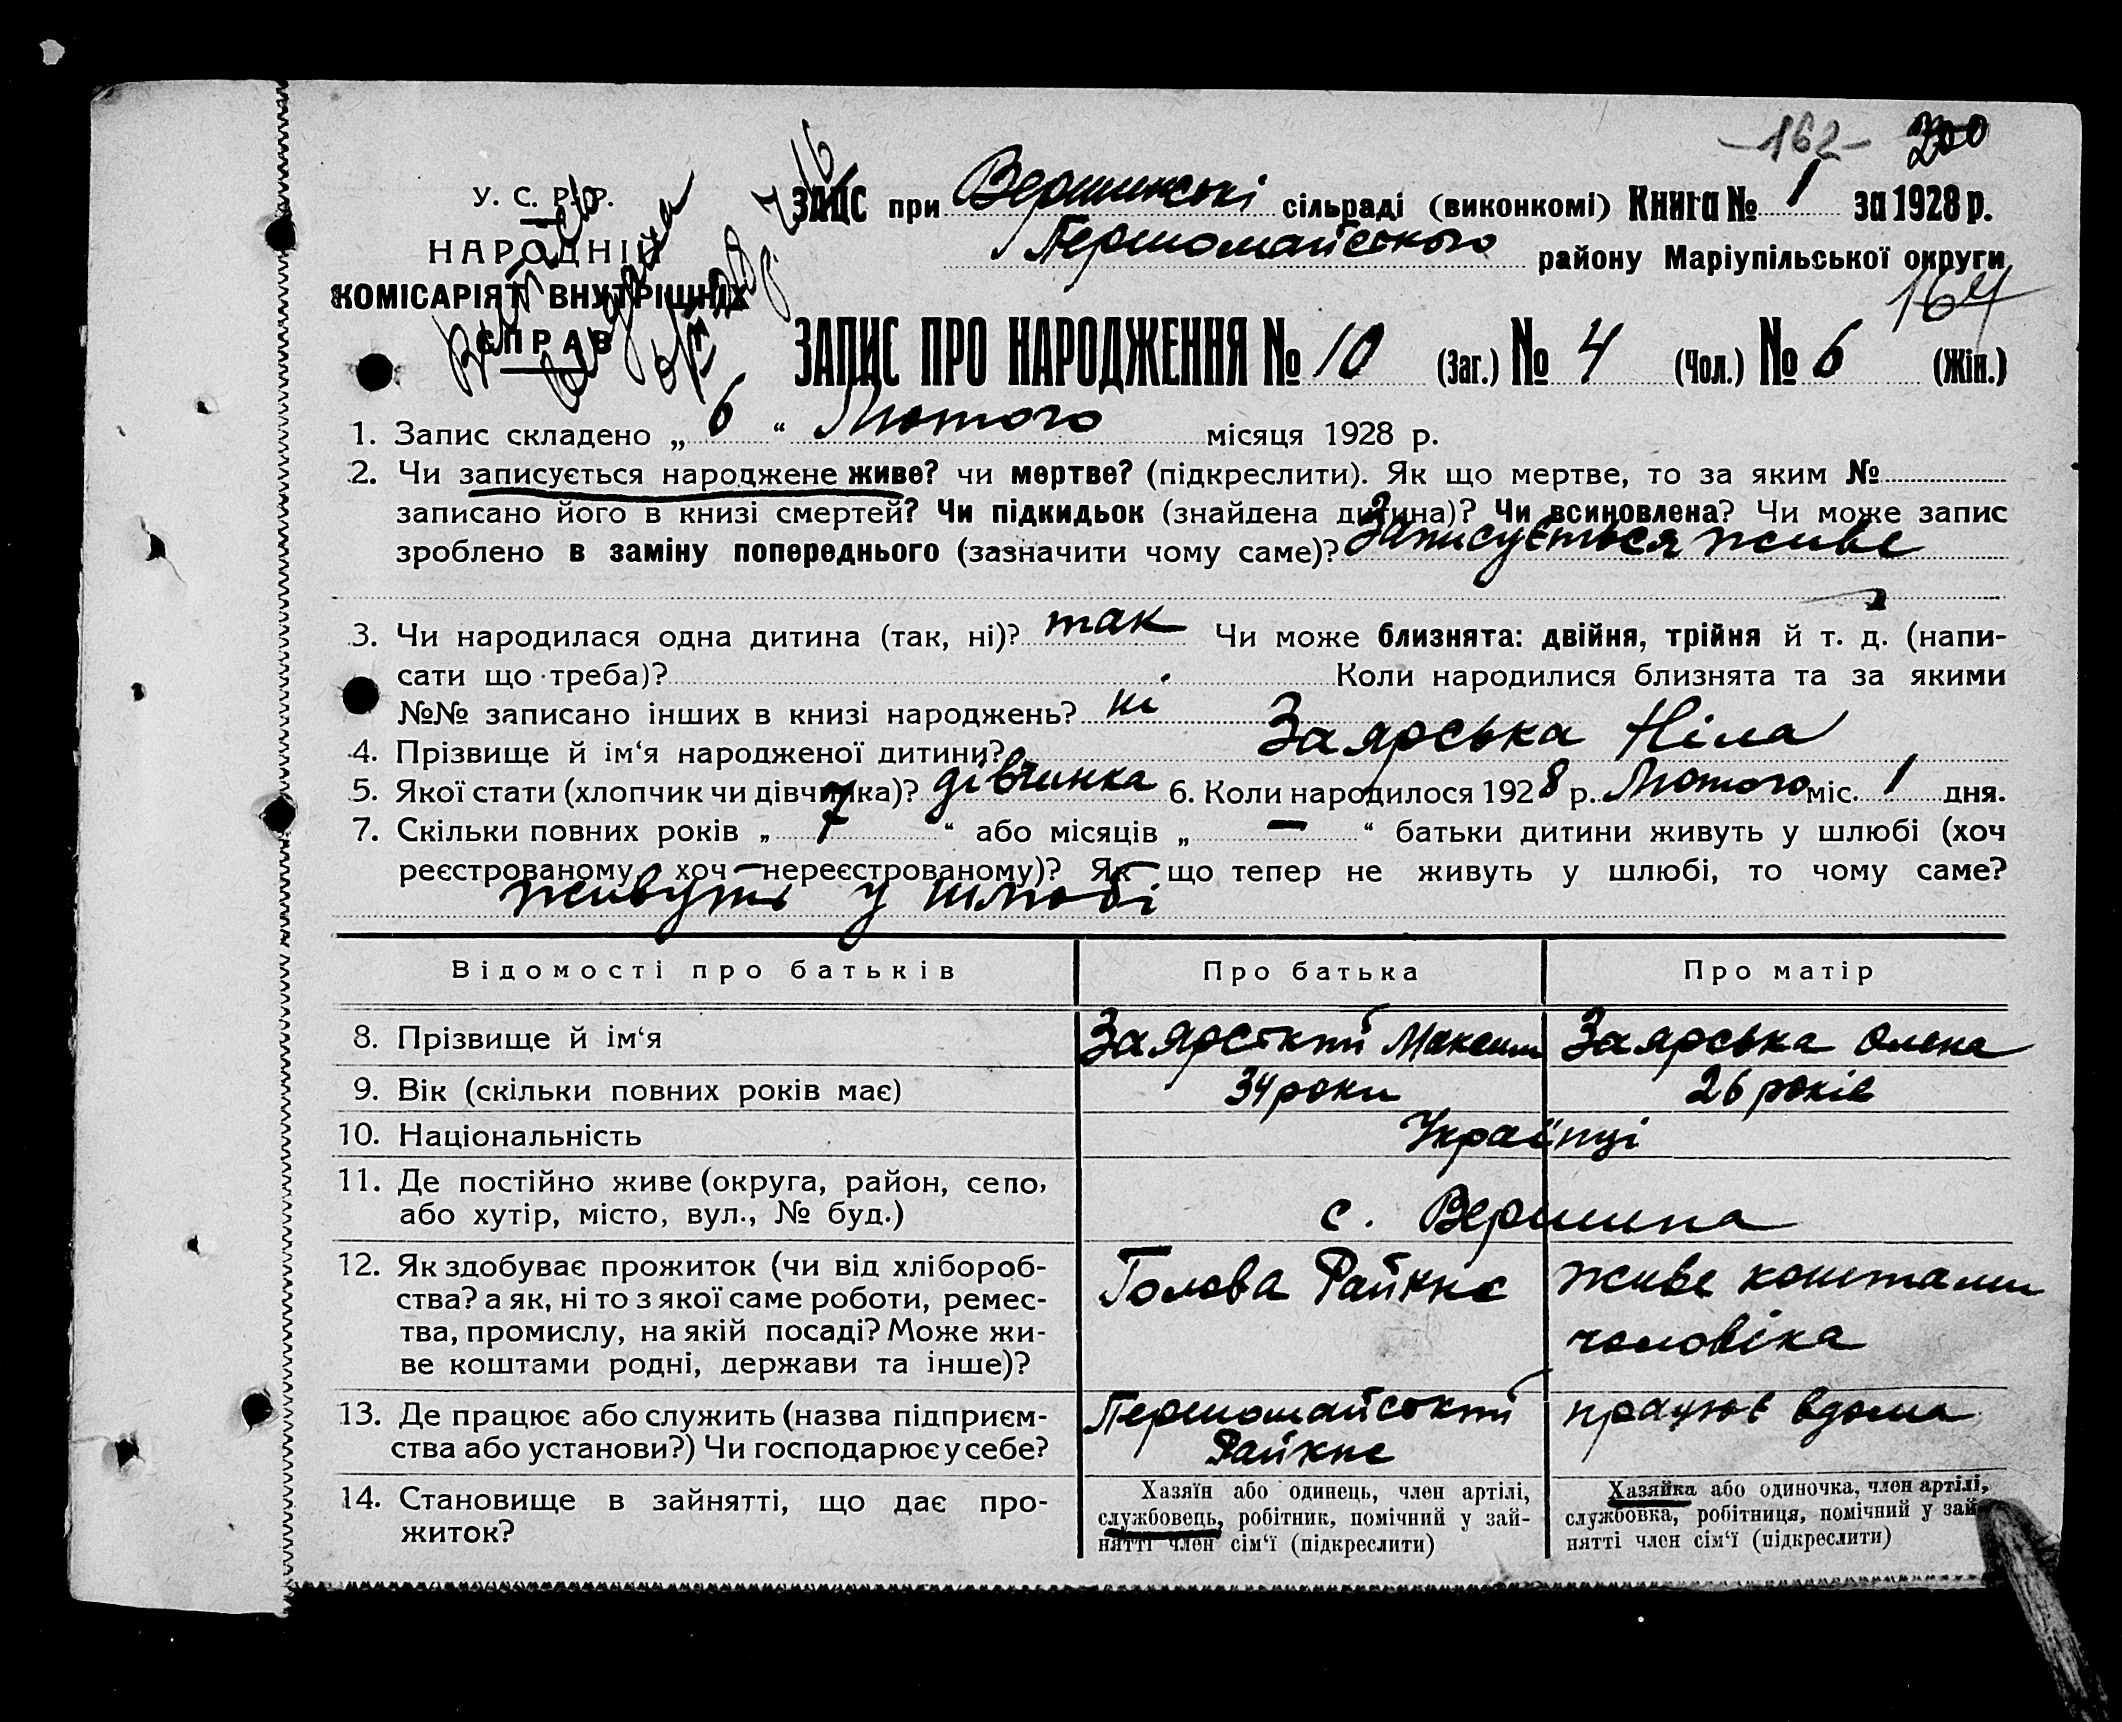 -162- 200
У. С. Р. Р.
НАРОДНІЙ
КОМІСАРІЯТ ВНУТРІШНІХ
СПРАВ
ЗАПИС при Вершинські сільраді (виконкомі) Книга № 1 за 1928 р.
Первомайського району Маріупільської округи
164
ЗАПИС ПРО НАРОДЖЕННЯ № 10 (Заг.) № 4 (Чол.) № 6 (Жін.)
1. Запис складено „ 6 “ Лютого місяця 1928 р.
2. Чи записується народжене живе? чи мертве? (підкреслити). Як що мертве, то за яким №
записано його в книзі смертей? Чи підкидьок (знайдена дитина)? Чи всиновлена? Чи може запис
зроблено в заміну попереднього (зазначити чому саме)? Записується живе
3. Чи народилася одна дитина (так, ні)? так Чи може близнята: двійня, трійня й т. д. (напи-
сати що треба)? Коли народилися близнята та за якими
№№ записано інших в книзі народжень? ні
4. Прізвище й ім‘я народженої дитини? Заярська Ніла
5. Якої стати (хлопчик чи дівчинка)? дівчинка 6. Коли народилося 1928 р. Лютого міс. 1 дня.
7. Скільки повних років „ 7 “ або місяців „ — “ батьки дитини живуть у шлюбі (хоч
реєстрованому, хоч нереєстрованому)? Як що тепер не живуть у шлюбі, то чому саме?
живуть у шлюбі
Відомості про батьків Про батька Про матір
8. Прізвище й ім‘я Заярський Максим Заярська Олена
9. Вік (скільки повних років має) 34 роки 26 років
10. Національність Українці
11. Де постійно живе (округа, район, село,
або хутір, місто, вул., № буд.) с. Вершина
12. Як здобуває прожиток (чи від хлібороб-
ства? а як, ні то з якої саме роботи, ремес-
тва, промислу, на якій посаді? Може жи-
ве коштами родні, держави та інше)?
Голова Райкнс живе коштами
чоловіка
13. Де працює або служить (назва підприєм-
ства або установи?) Чи господарює у себе?
Первомайський працює вдома
Райкнс
14. Становище в зайнятті, що дає про-
житок?
Хазяїн або одинець, член артілі,
службовець, робітник, помічний у зай-
нятті член сім‘ї (підкреслити)
Хазяйка або одиночка, член артілі,
службовка, робітниця, помічний у зай-
нятті член сім‘ї (підкреслити)